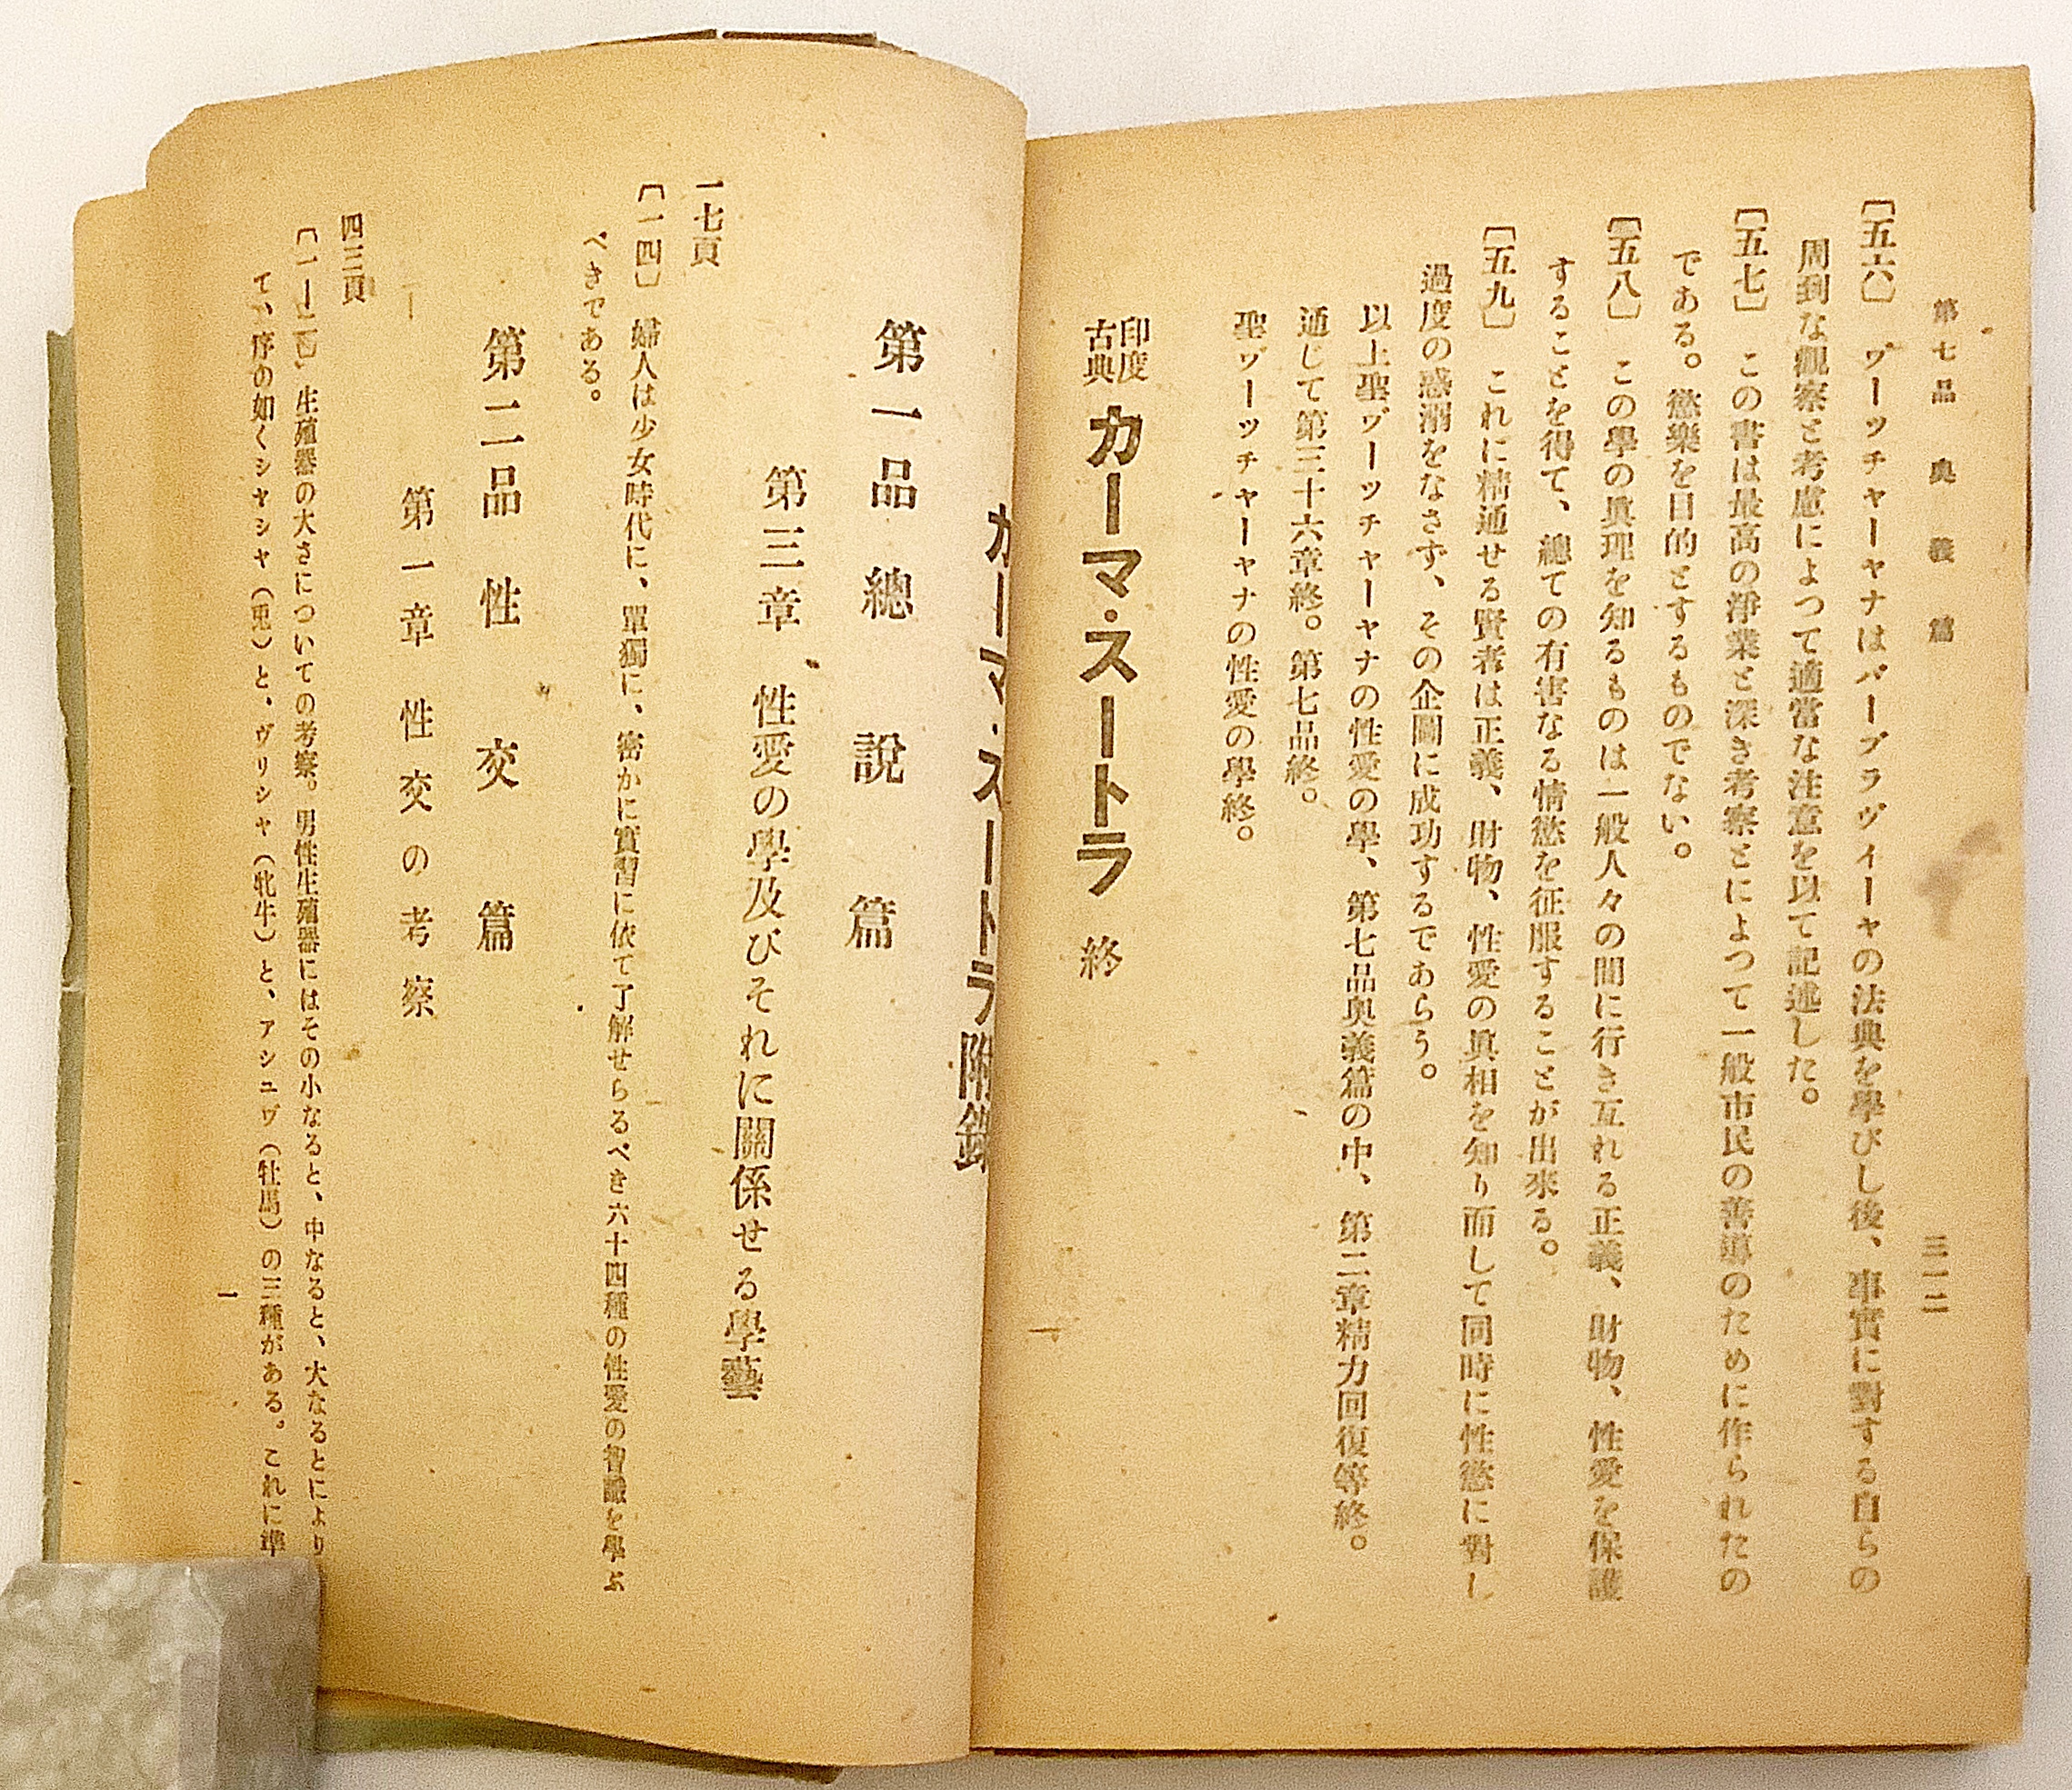 第七品 奥義篇 三一二
〔五六〕 ヷーッチャーヤナはバーブラヴィーヤの法典を學びし後、事實に對する自らの
周到な觀察と考慮によつて適當な注意を以て記述した。
〔五七〕 この書は最高の淨業と深き考察とによつて一般市民の善導のために作られたの
である。慾樂を目的とするものでない。
〔五八〕 この學の眞理を知るものは一般人々の間に行き互れる正義、財物、性愛を保護
することを得て、總ての有害なる情慾を征服することが出來る。
〔五九〕 これに精通せる賢者は正義、財物、性愛の眞相を知り而して同時に性慾に對し
過度の惑溺をなさず、その企圖に成功するであらう。
以上聖ヷーッチャーヤナの性愛の學、第七品奥義篇の中、第二章精力回復等終。
通じて第三十六章終。第七品終。
聖ヷーッチャーヤナの性愛の學終。
印度古典 カーマ・スートラ 終
カーマ・スートラ附錄
第一品 總說篇
第三章 性愛の學及びそれに關係せる學藝
一七頁
〔一四〕 婦人は少女時代に、單獨に、密かに實習に依て了解せらるべき六十四種の性愛の智識を學ぶ
べきである。
第二品 性交篇
第一章 性交の考察
四三頁
生殖器の大さについての考察。男性生殖器にはその小なると、中なると、大なるとにより
て、序の如くシャシャ（兎）と、ヴリシャ（牝牛）と、アシュヷ（牡馬）の三種がある。これに準
一